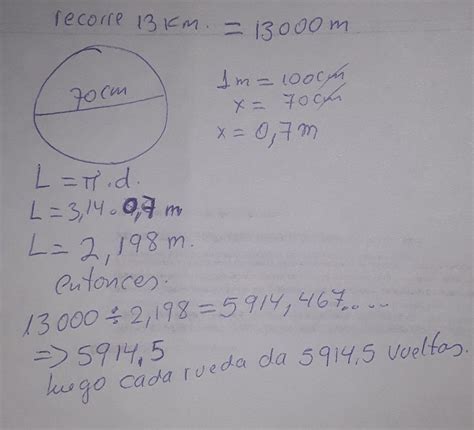 recorre 13 Km. = 13000 m
70cm
1m = 100cm
x = 70cm
x = 0,7m
L = π.d.
L = 3,14 . 0,7 m
L = 2,198 m.
entonces.
13000 ÷ 2,198 = 5914,467.....
=> 5914.5
luego cada rueda da 5914,5 vueltas.